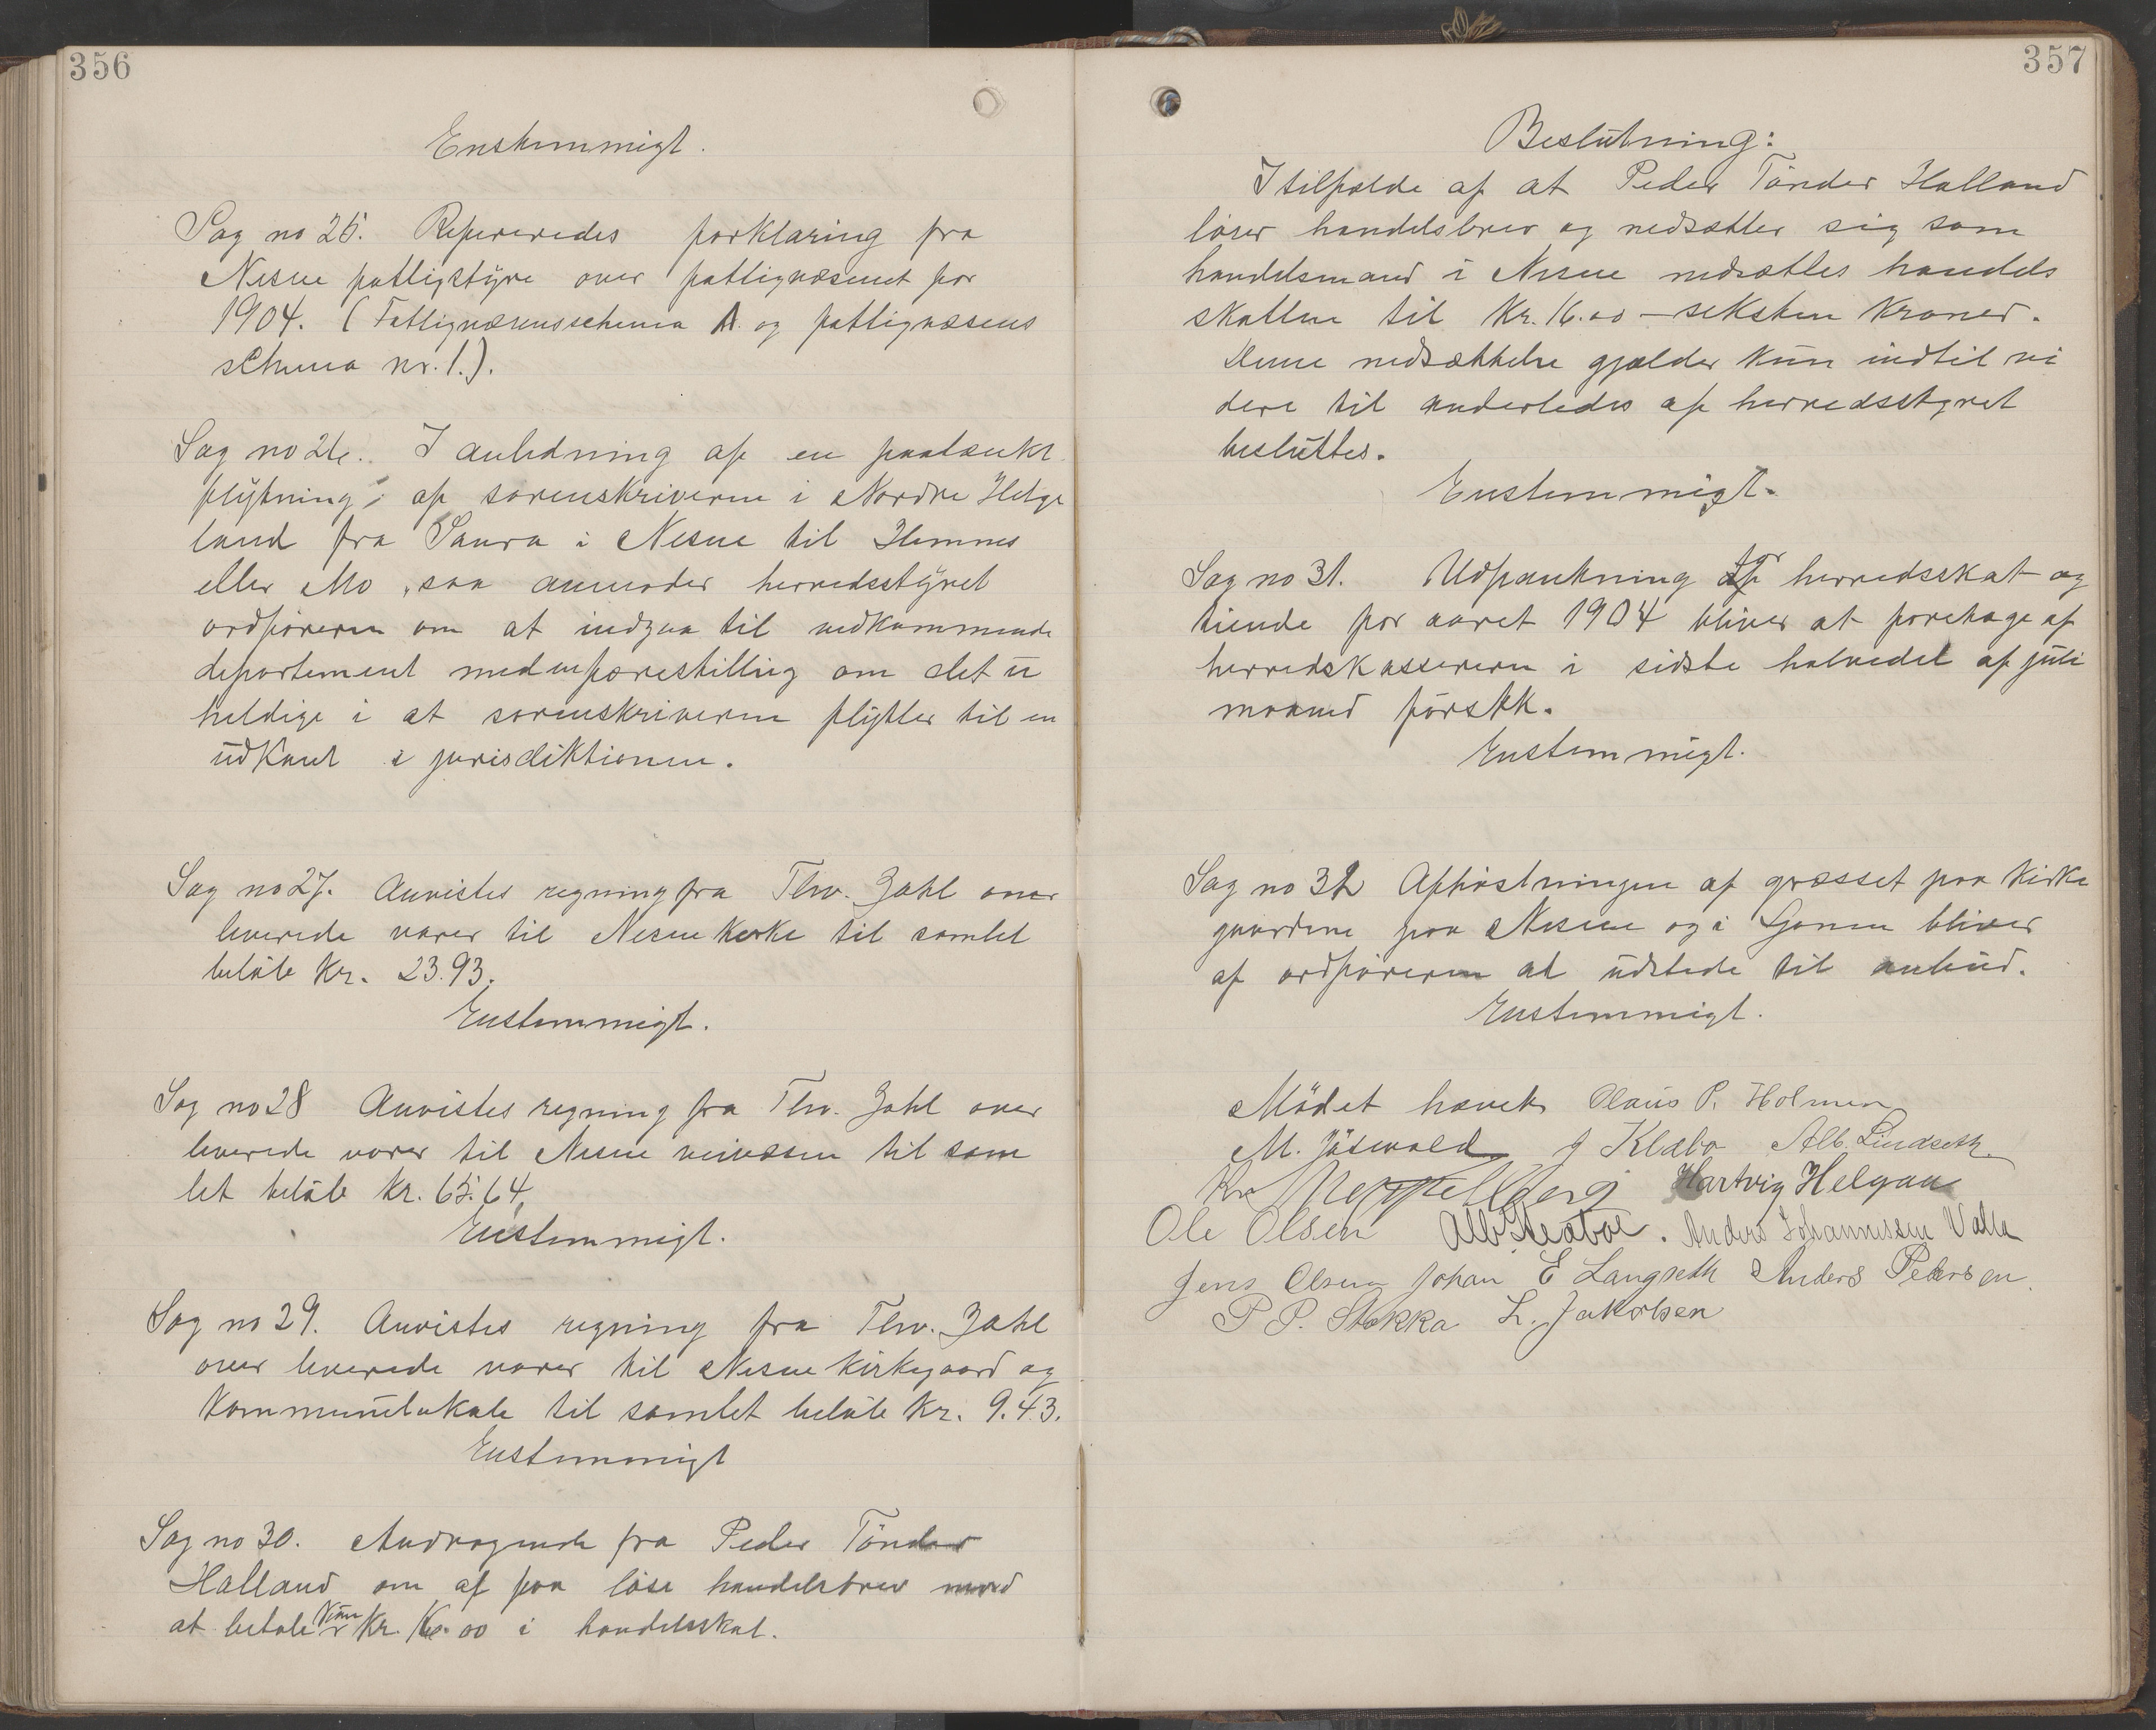 356
Enstemmigt.
Sag no 25. Refereredes forklaring fra
Nesne fattigstyre over fattigvæsenet for
1904. (Fattigvæsensschema A. og fattigvæsens
schema nr. 1.).
Sag no 26. I anledning af en paatænkt
flytning af sorenskriveren i Nordre Helge
land fra Saura i Nesne til Hemnes
eller Mo, saa anmoder herredsstyret
ordføreren om at indgaa til vedkommende
departement med en forestilling om det u
heldige i at sorenskriveren flytter til en
udkant i jurisdiktionen.
Sag no 27. Anvistes regning fra Thv. Zahl over
leverede varer til Nesne kirke til samlet
beløb kr. 23.93.
Enstemmigt.
Sag no 28 Anvistes regning fra Thv. Zahl over
leverede varer til Nesne veivæsen til sam
let beløb kr. 65.64,
Enstemmigt.
Sag no 29. Anvistes regning fra Thv. Zahl
over leverede varer til Nesne kirkegaard og
kommunelokale til samlet beløb kr. 9.43.
Enstemmigt
Sag no 30. Andragende fra Peder Tönder
Halland om at faa løse handelsbrev mod
at betale kun kr. 16.00 i handelsskat.
357
Beslutning:
I tilfælde af at Peder Tönder Halland
løser handelsbrev og nedsætter sig som
handelsmand i Nesne nedsættes handels
skatten til kr. 16.00 – seksten kroner.
Denne nedsættelse gjælder kun indtil vi
dere til anderledes af herredsstyret
besluttes.
Enstemmigt.
Sag no 31. Udpantning for herredsskat og
tiende for aaret 1904 bliver at foretage af
herredskassereren i sidste halvedel af juli
maaned førstk.
Enstemmigt.
Sag no 32 Afhøstningen af græsset paa kirke
gaardene paa Nesne og i Sjonen bliver
af ordføreren at udstede til anbud.
Enstemmigt.
Mødet hævet Claus P. Holmen
M. Jäswold J Klæbo Alb. Lindseth
Kr Meppelberg Hartvig Helgaa
Ole Olsen Anders Johannessen Valla
Jens Olsen Johan E Langseth Anders Petersen.
P P. Stokka L. Jakobsen